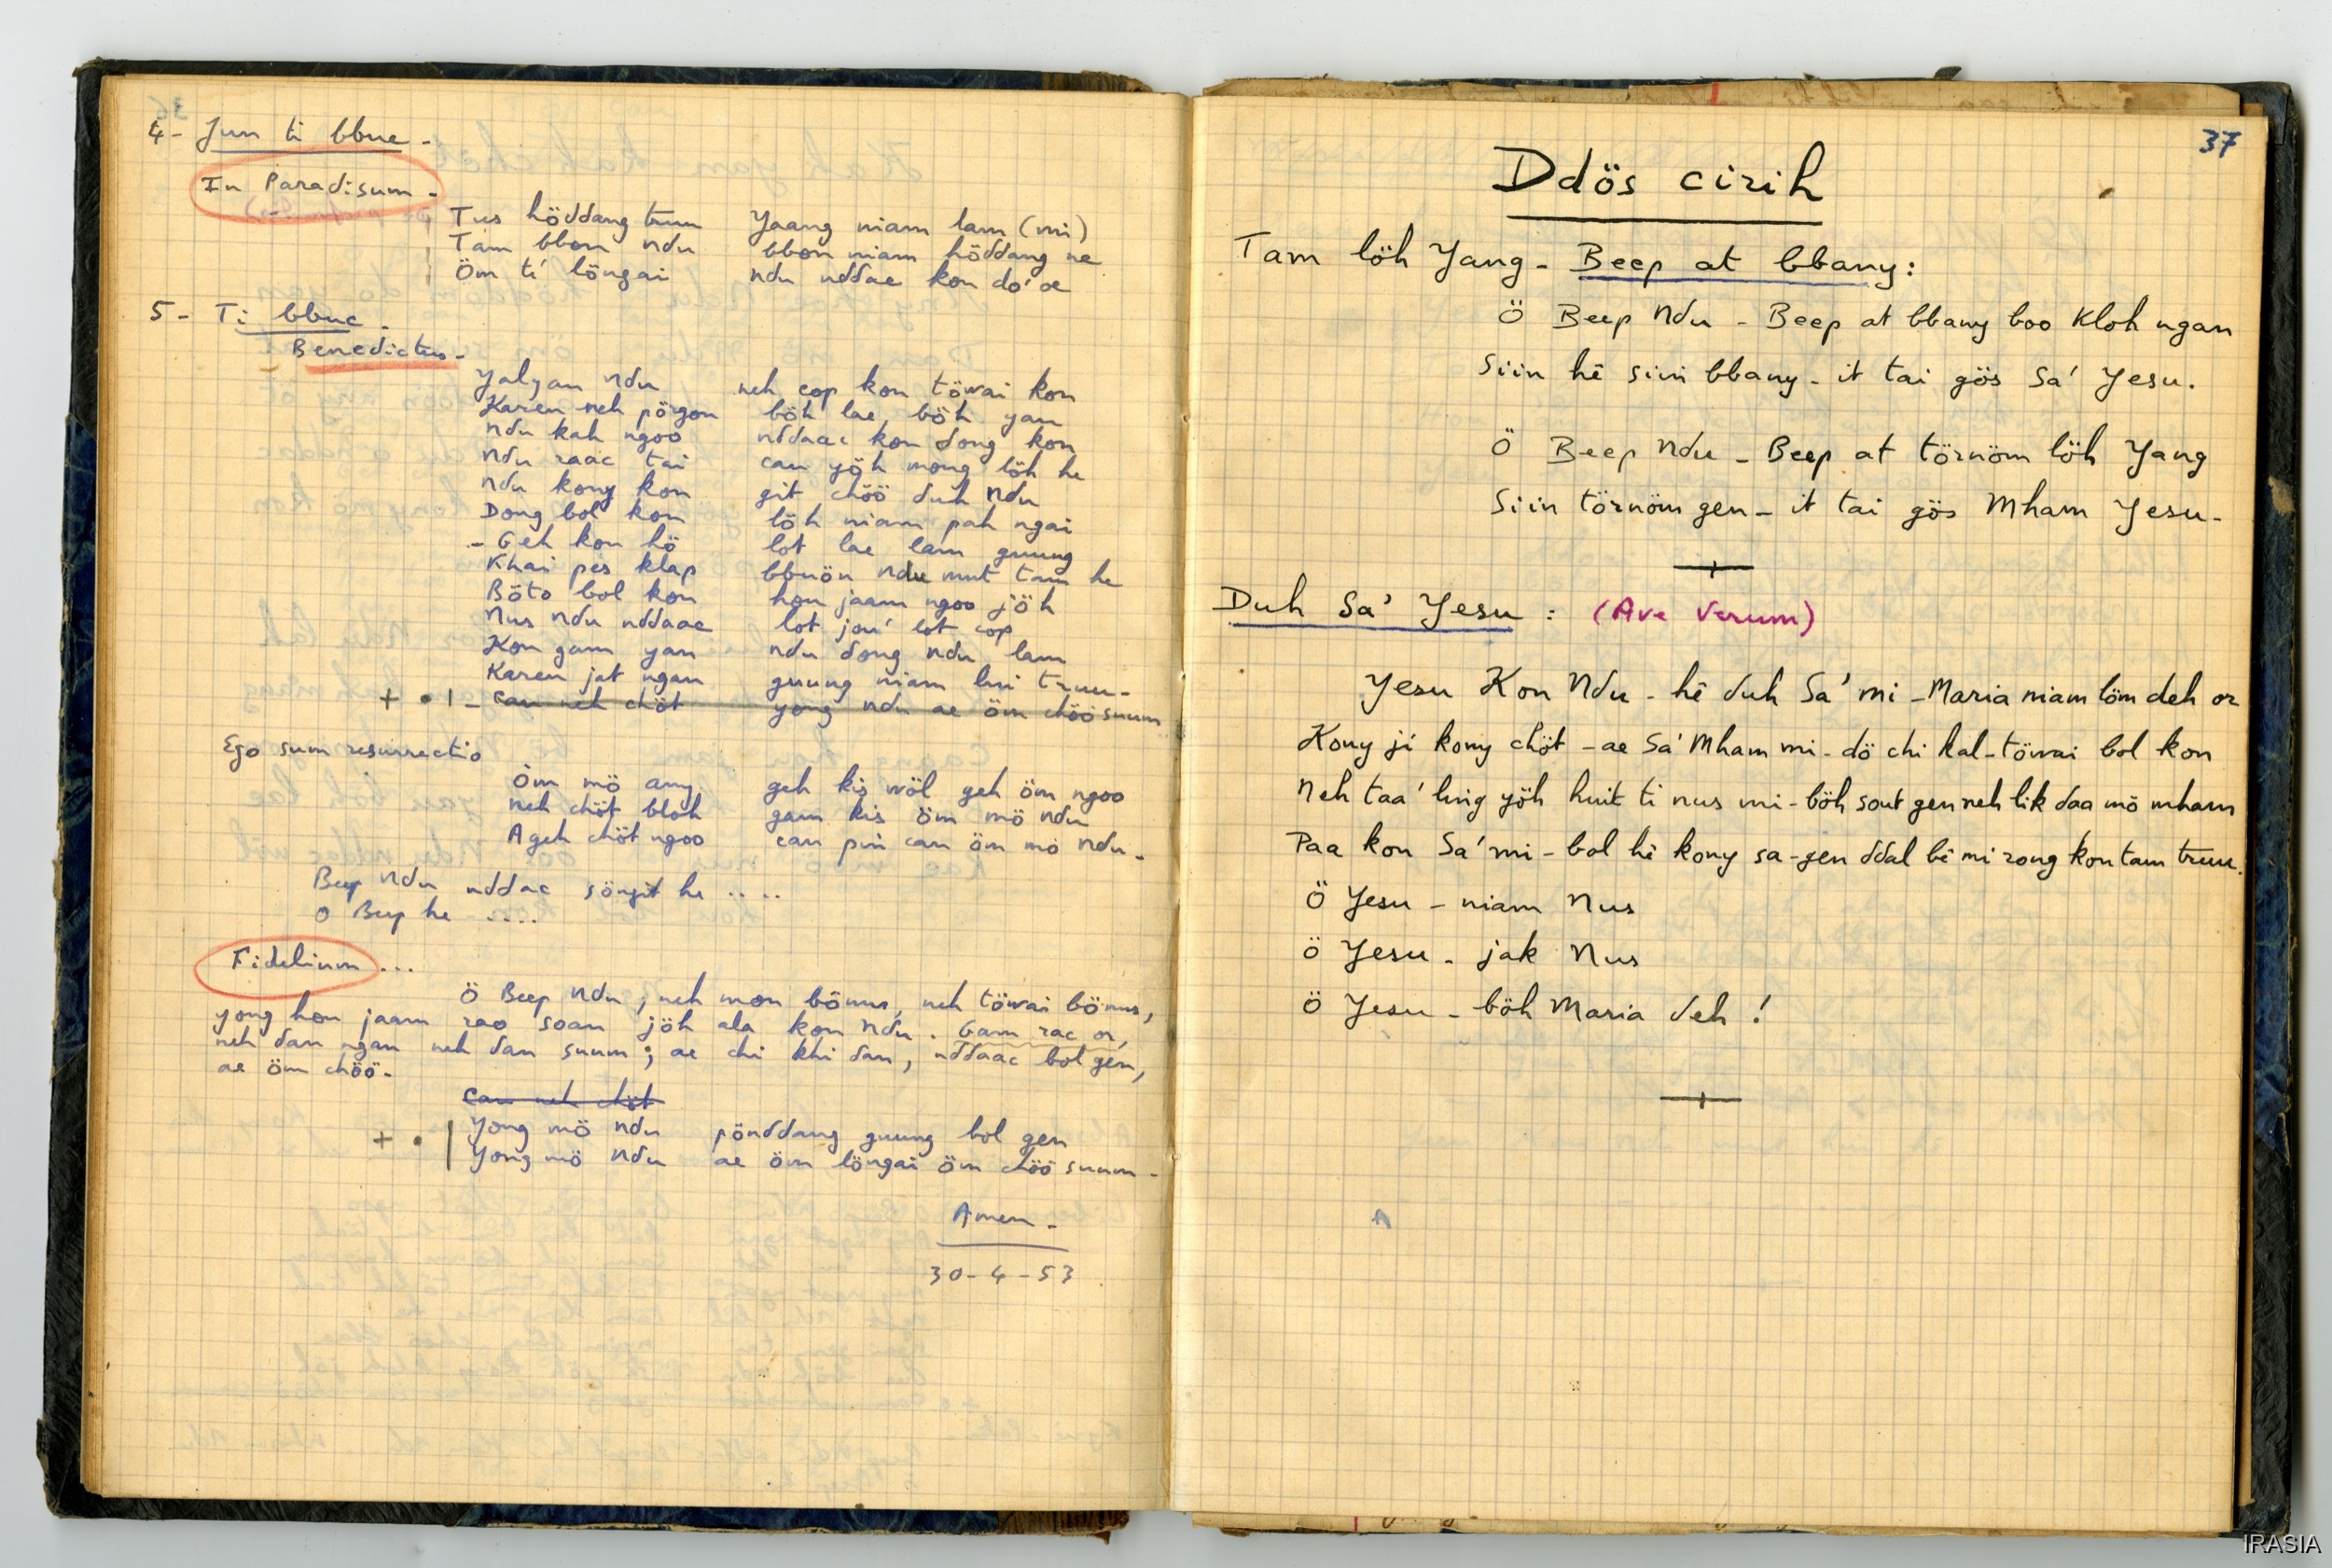 4- Jun ti bbuc -
In Paradisum -
Tus höddang truu Yaang niam lam (mi)
Tam bbon ndu bbon niam höddang ne
Öm ti löngai ndu nddae kon do' oe
5- Ti bbuc -
Benedictus -
Yalyau ndu neh cop kon töwai kon
Karen neh pörgon böh lae, böh yau
ndu kah ngoo nddaac kon dong kon
ndu raac tai cau yöh mong löh he
ndu kony kon git chöö duh ndu
Dong bol kon löh niam pah ngai
- Geh kon hö lot lae lam guung
Khai pes klap bbuön ndu mut tam he
Böto bol kon hon jaam ngoo jöh
Nus ndu nddaac lot jou' lot cop
Kon gam yau ndu dong ndu lam
Karen jat ngan guung niam hui truu -
+ • | - cau neh chöt yong ndu ae öm chöö suum
Ego sum resurrectio
Öm mö any geh kis wöl geh öm ngoo
neh chöt bloh gam kis öm mö ndu
A geh chöt ngoo cau pin cau öm mö ndu -
Beep ndu nddac söngit he ....
o Beep he ....
Fidelium ...
Ö Beep ndu, neh mon bönus, neh töwai bönus,
yong hon jaam rao soan jöh ala kon ndu. Gam rac or,
neh dan ngan neh dan suum; ae chi khi dan, nddaac bol gen,
ae öm chöö -
cau neh chöt
+ • | Yong mö ndu pönddang guung bol gen
Yong mö ndu ae öm löngai öm chöö suum -
Amen -
30-4-53
37
Ddös cirih
Tam löh Yang - Beep at bbany:
Ö Beep Ndu - Beep at bbany boo Kloh ngan
Siin hê siin bbany - it tai gös Sa' Yesu.
Ö Beep Ndu - Beep at törnöm löh Yang
Siin törnöm gen - it tai gös Mham Yesu -
Duh Sa' Yesu : (Ave Verum)
Yesu Kon Ndu - hê duh Sa' mi - Maria niam löm deh or
Kony ji kony chöt - ae Sa' Mham mi - dö chi kal - töwai bol kon
Neh taa' ling yöh huit ti nus mi - böh sout gen neh lik daa mö mham
Paa kon Sa' mi - bol hê kony sa - gen ddal bê mi rong kon tam truu.
Ö Yesu - niam Nus
Ö Yesu - jak Nus
Ö Yesu - böh Maria deh !
IRASIA